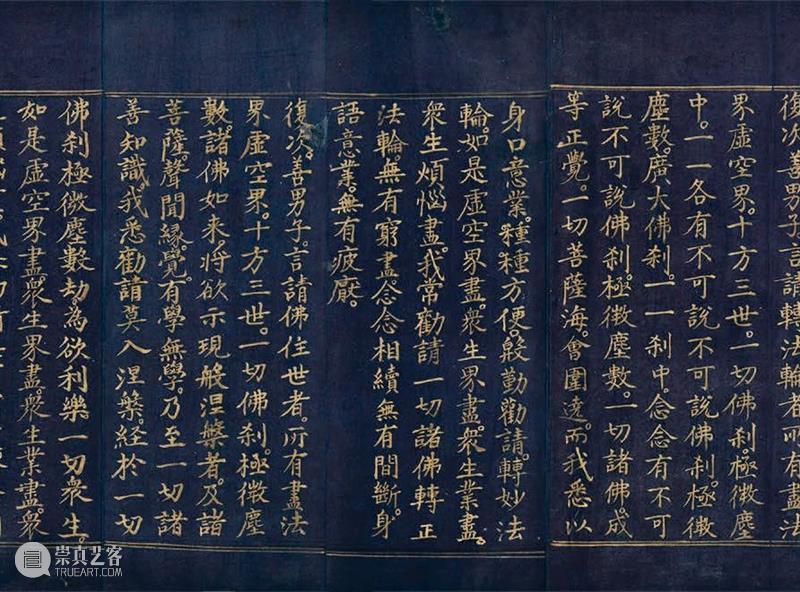 復次善男子言請轉法輪者所有盡法
界虛空界。十方三世。一切佛刹。極微塵
中。一一各有不可說不可說佛刹。極微
塵數。廣大佛刹。一一刹中。念念有不可
說不可說佛刹。極微塵數。一切諸佛。成
等正覺。一切菩薩海。會圍遶。而我悉以
身口意業。種種方便。殷勤勸請。轉妙法
輪。如是虛空界盡。衆生界盡。衆生業盡。
衆生煩惱盡。我常勸請一切諸佛轉正
法輪。無有窮盡。念念相續。無有間斷。身
語意業。無有疲厭。
復次。善男子。言請佛住世者。所有盡法
界虛空界。十方三世。一切佛刹。極微塵
數。諸佛如來。將欲示現般涅槃者。及諸
菩薩。聲聞緣覺。有學無學。乃至一切諸
善知識。我悉勸請。莫入涅槃。經於一切
佛刹極微塵數劫。為欲利樂一切衆生。
如是虛空界盡。衆生界盡。衆生業盡。衆
崇真艺客
TRUEART.COM